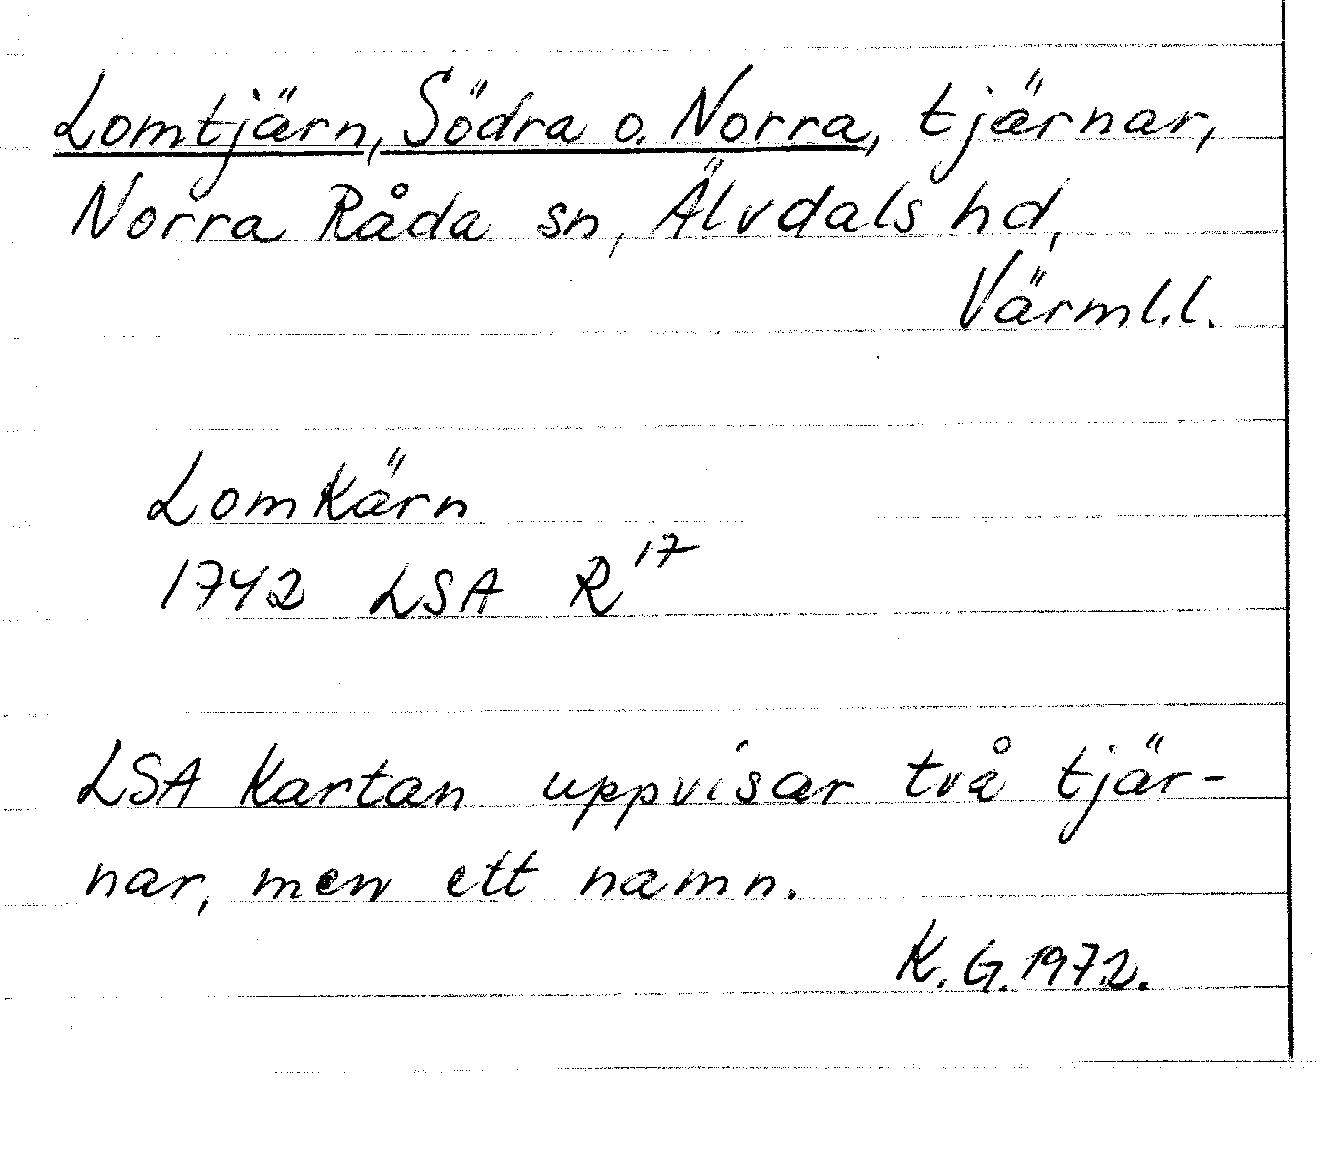 Lomtjärn, Södra o. Norra, tjärnar,
Norra Råda sn, Älvdals hd,
Värml.l.
Lomkärn
1742 LSA R¹⁷
LSA kartan uppvisar två tjär-
nar, men ett namn.
K.G. 1972.